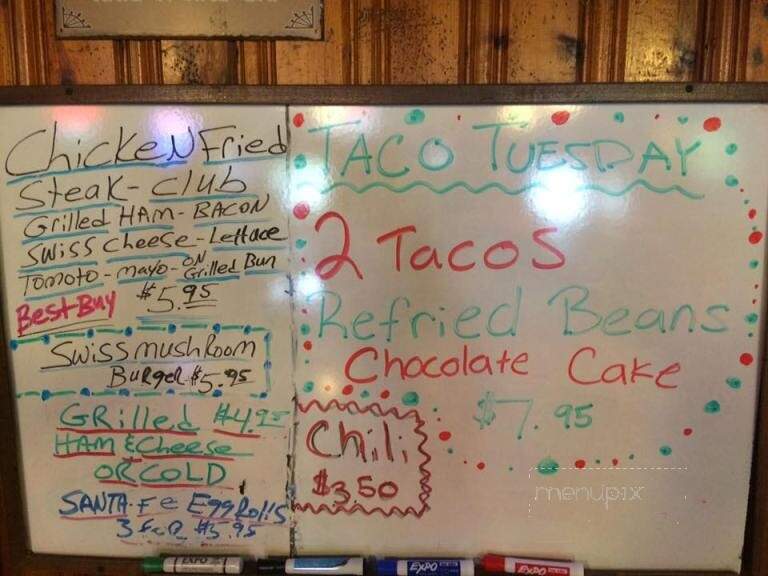 Chicken Fried
Steak - Club
Grilled HAM - BACON
Swiss Cheese - Lettace
Tomoto - mayo - ON Grilled Bun
Best Buy $5.95
Swiss mushroom
Burger $5.95
GRilled $4.95
HAM & Cheese
OR COLD
SANTA-Fe Egg Rolls
3 for $3.95
TACO TUESDAY
2 Tacos
Refried Beans
Chocolate Cake
$7.95
Chili
$3.50
menupix
EXPO
EXPO
EXPO